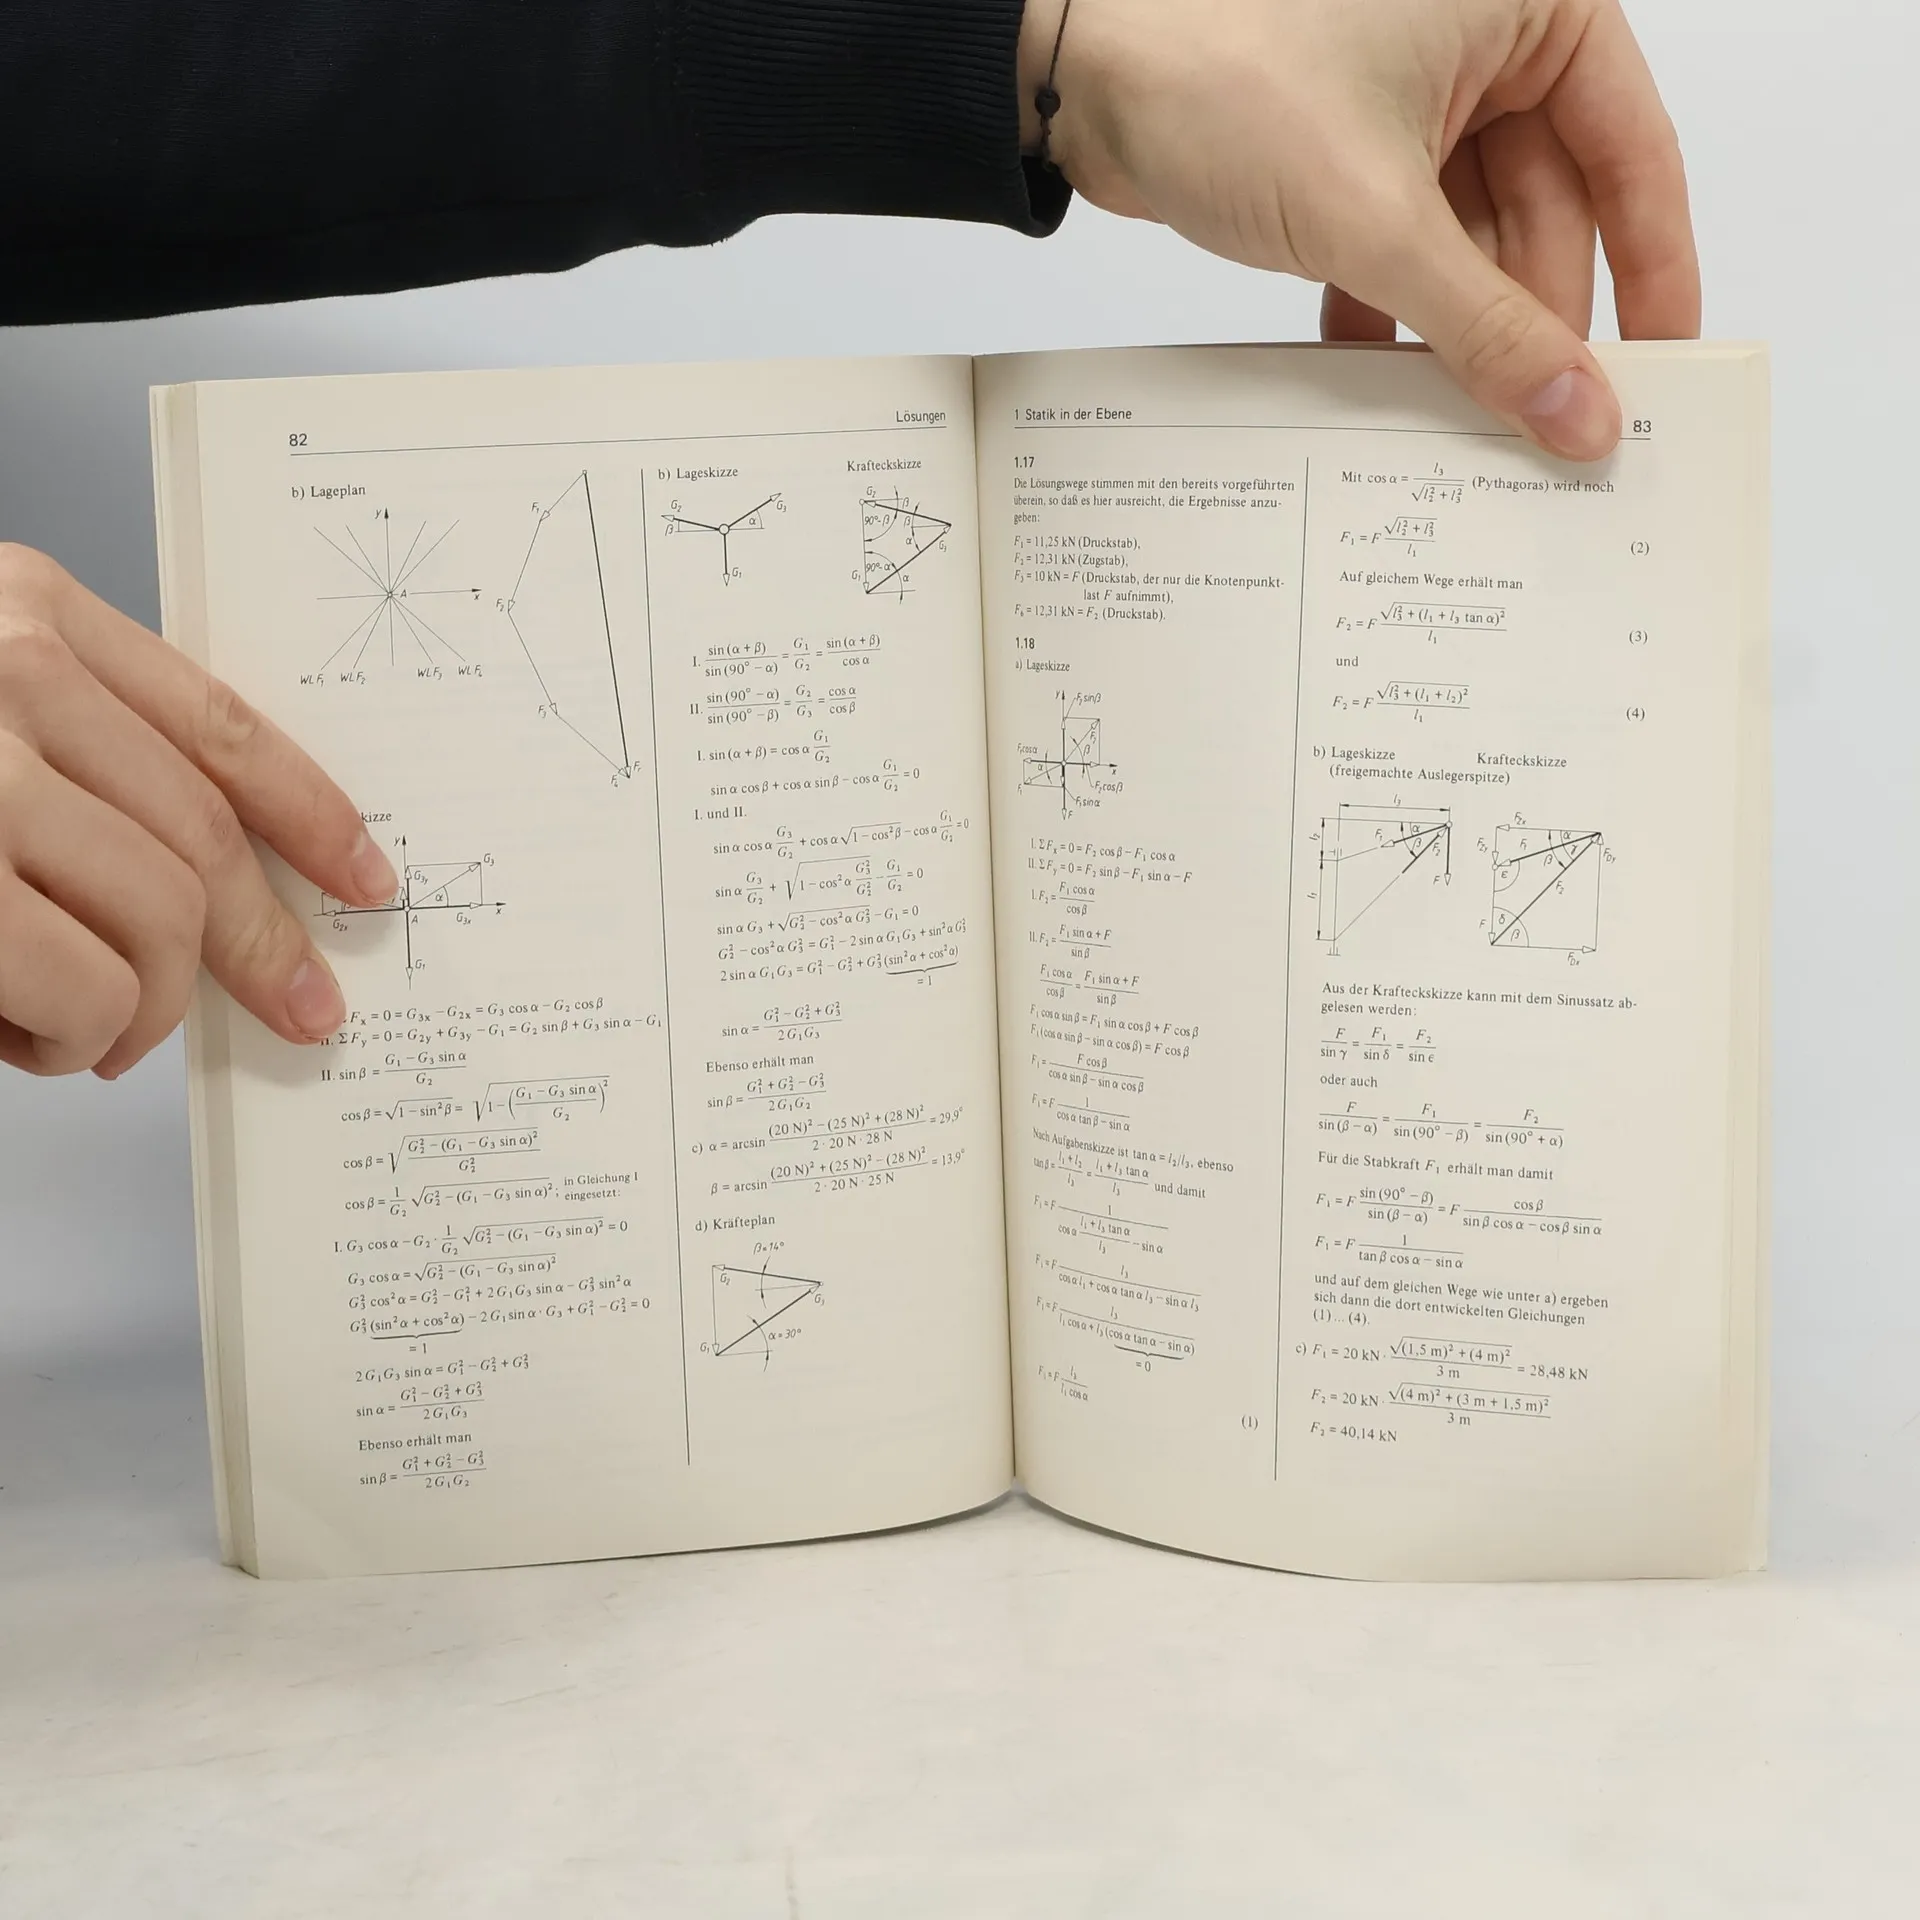 82
Lösungen
b) Lageplan
y
F₁
A
x
F₂
WLF₁ WLF₂ WLF₃ WLF₄
F₃
F₄ Fᵣ
kizze
y
G₃
G₃y
α
x
G₂ₓ A G₃ₓ
G₁
Fₓ = 0 = G₃ₓ − G₂ₓ = G₃ cos α − G₂ cos β
II. ΣFy = 0 = G₂y + G₃y − G₁ = G₂ sin β + G₃ sin α − G₁
II. sin β = (G₁ − G₃ sin α) / G₂
cos β = √(1 − sin²β) = √(1 − ((G₁ − G₃ sin α) / G₂)²)
cos β = √((G₂² − (G₁ − G₃ sin α)²) / G₂²)
cos β = 1/G₂ √(G₂² − (G₁ − G₃ sin α)²); in Gleichung I
eingesetzt:
I. G₃ cos α − G₂ · 1/G₂ √(G₂² − (G₁ − G₃ sin α)²) = 0
G₃ cos α = √(G₂² − (G₁ − G₃ sin α)²)
G₃² cos²α = G₂² − G₁² + 2 G₁G₃ sin α − G₃² sin²α
G₃² (sin²α + cos²α) − 2 G₁ sin α · G₃ + G₁² − G₂² = 0
= 1
2 G₁G₃ sin α = G₁² − G₂² + G₃²
sin α = (G₁² − G₂² + G₃²) / (2 G₁G₃)
Ebenso erhält man
sin β = (G₁² + G₂² − G₃²) / (2 G₁G₂)
b) Lageskizze Krafteckskizze
G₂ G₃
β α
G₁
G₂
β
90°-β β
α G₃
90°-α
G₁ α
I. sin (α + β) / sin (90° − α) = G₁/G₂ = sin (α + β) / cos α
II. sin (90° − α) / sin (90° − β) = G₂/G₃ = cos α / cos β
I. sin (α + β) = cos α G₁/G₂
sin α cos β + cos α sin β − cos α G₁/G₂ = 0
I. und II.
sin α cos α G₃/G₂ + cos α √(1 − cos²β) − cos α G₁/G₂ = 0
sin α G₃/G₂ + √(1 − cos²α G₃²/G₂²) − G₁/G₂ = 0
sin α G₃ + √(G₂² − cos²α G₃²) − G₁ = 0
G₂² − cos²α G₃² = G₁² − 2 sin α G₁G₃ + sin²α G₃²
2 sin α G₁G₃ = G₁² − G₂² + G₃² (sin²α + cos²α)
= 1
sin α = (G₁² − G₂² + G₃²) / (2 G₁G₃)
Ebenso erhält man
sin β = (G₁² + G₂² − G₃²) / (2 G₁G₂)
c) α = arcsin ((20 N)² − (25 N)² + (28 N)²) / (2 · 20 N · 28 N) = 29,9°
β = arcsin ((20 N)² + (25 N)² − (28 N)²) / (2 · 20 N · 25 N) = 13,9°
d) Kräfteplan
β=14°
G₂
G₃
G₁ α=30°
1 Statik in der Ebene
83
1.17
Die Lösungswege stimmen mit den bereits vorgeführten
überein, so daß es hier ausreicht, die Ergebnisse anzu-
geben:
F₁ = 11,25 kN (Druckstab),
F₂ = 12,31 kN (Zugstab),
F₃ = 10 kN = F (Druckstab, der nur die Knotenpunkt-
last F aufnimmt),
F₄ = 12,31 kN = F₂ (Druckstab).
1.18
a) Lageskizze
y F₂sinβ
F₁cosα F₂
α β x
F₁ F₂cosβ
F₁sinα
F
I. ΣFₓ = 0 = F₂ cos β − F₁ cos α
II. ΣFy = 0 = F₂ sin β − F₁ sin α − F
I. F₂ = F₁ cos α / cos β
II. F₂ = (F₁ sin α + F) / sin β
F₁ cos α / cos β = (F₁ sin α + F) / sin β
F₁ cos α sin β = F₁ sin α cos β + F cos β
F₁ (cos α sin β − sin α cos β) = F cos β
F₁ = F cos β / (cos α sin β − sin α cos β)
F₁ = F 1 / (cos α tan β − sin α)
Nach Aufgabenskizze ist tan α = l₂/l₃, ebenso
tan β = (l₁ + l₂) / l₃ = (l₁ + l₃ tan α) / l₃ und damit
F₁ = F 1 / (cos α (l₁ + l₃ tan α) / l₃ − sin α)
F₁ = F l₃ / (cos α l₁ + cos α tan α l₃ − sin α l₃)
F₁ = F l₃ / (l₁ cos α + l₃ (cos α tan α − sin α))
= 0
F₁ = F l₃ / (l₁ cos α)
(1)
Mit cos α = l₃ / √(l₂² + l₃²) (Pythagoras) wird noch
F₁ = F √(l₂² + l₃²) / l₁ (2)
Auf gleichem Wege erhält man
F₂ = F √(l₃² + (l₁ + l₃ tan α)²) / l₁ (3)
und
F₂ = F √(l₃² + (l₁ + l₂)²) / l₁ (4)
b) Lageskizze Krafteckskizze
(freigemachte Auslegerspitze)
l₃
l₂ F₁ α β F₂
l₁ F
F₂ₓ
F₂y F₁ α γ FDy
ε β F₂
F δ
β
FDx
Aus der Krafteckskizze kann mit dem Sinussatz ab-
gelesen werden:
F / sin γ = F₁ / sin δ = F₂ / sin ε
oder auch
F / sin (β − α) = F₁ / sin (90° − β) = F₂ / sin (90° + α)
Für die Stabkraft F₁ erhält man damit
F₁ = F sin (90° − β) / sin (β − α) = F cos β / (sin β cos α − cos β sin α)
F₁ = F 1 / (tan β cos α − sin α)
und auf dem gleichen Wege wie unter a) ergeben
sich dann die dort entwickelten Gleichungen
(1) ... (4).
c) F₁ = 20 kN · √((1,5 m)² + (4 m)²) / 3 m = 28,48 kN
F₂ = 20 kN · √((4 m)² + (3 m + 1,5 m)²) / 3 m
F₂ = 40,14 kN